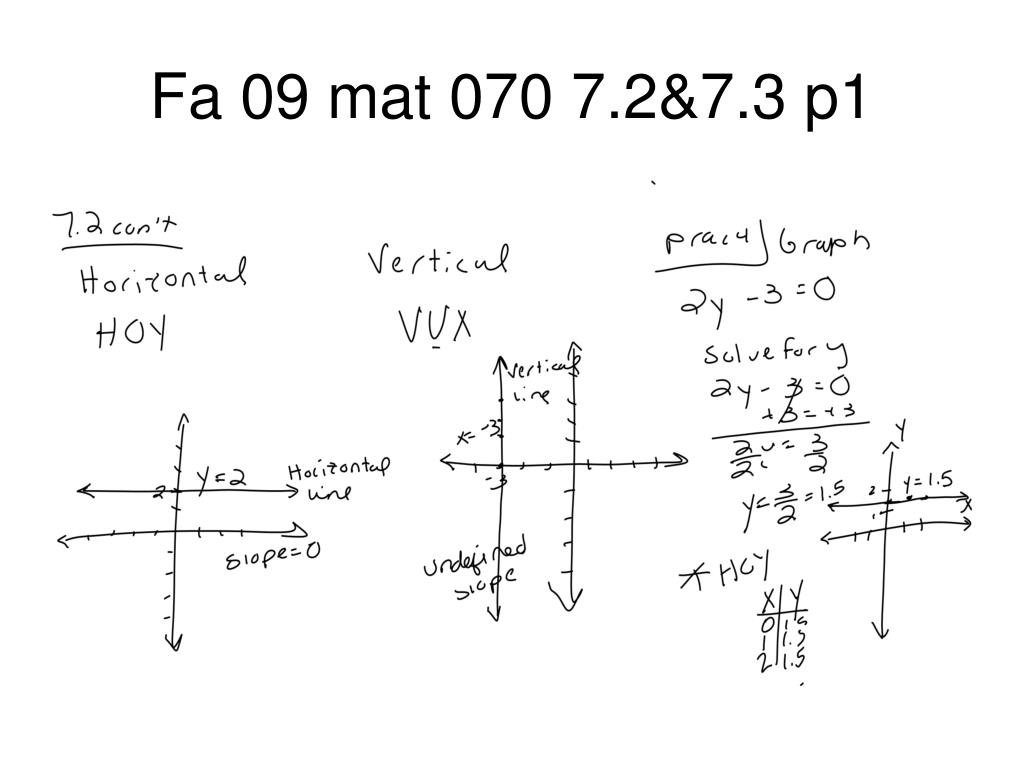 Fa 09 mat 070 7.2&7.3 p1
7.2 con't
Horizontal
HOY
y=2
2
Horizontal
Line
slope=0
Vertical
VUX
Vertical
Line
x=-3
-3
undefined
slope
prac4 Graph
2y -3=0
Solve for y
2y - 3=0
+3=+3
2/2 y = 3/2
y=3/2=1.5
* HOY
X Y
0 1.5
1 1.5
2 1.5
Y
2
y=1.5
X
1